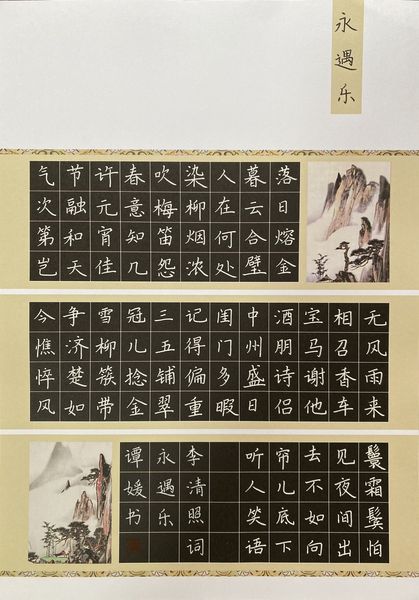 永遇乐
落日熔金
暮云合璧
人在何处
染柳烟浓
吹梅笛怨
春意知几
许元宵佳
节融和天
气次第岂
无风雨来
相召香车
宝马谢他
酒朋诗侣
中州盛日
闺门多暇
记得偏重
三五铺翠
冠儿捻金
雪柳簇带
争济楚如
今憔悴风
鬟霜鬓怕
见夜间出
去不如向
帘儿底下
听人笑语
李清照词
永遇乐
谭媛书